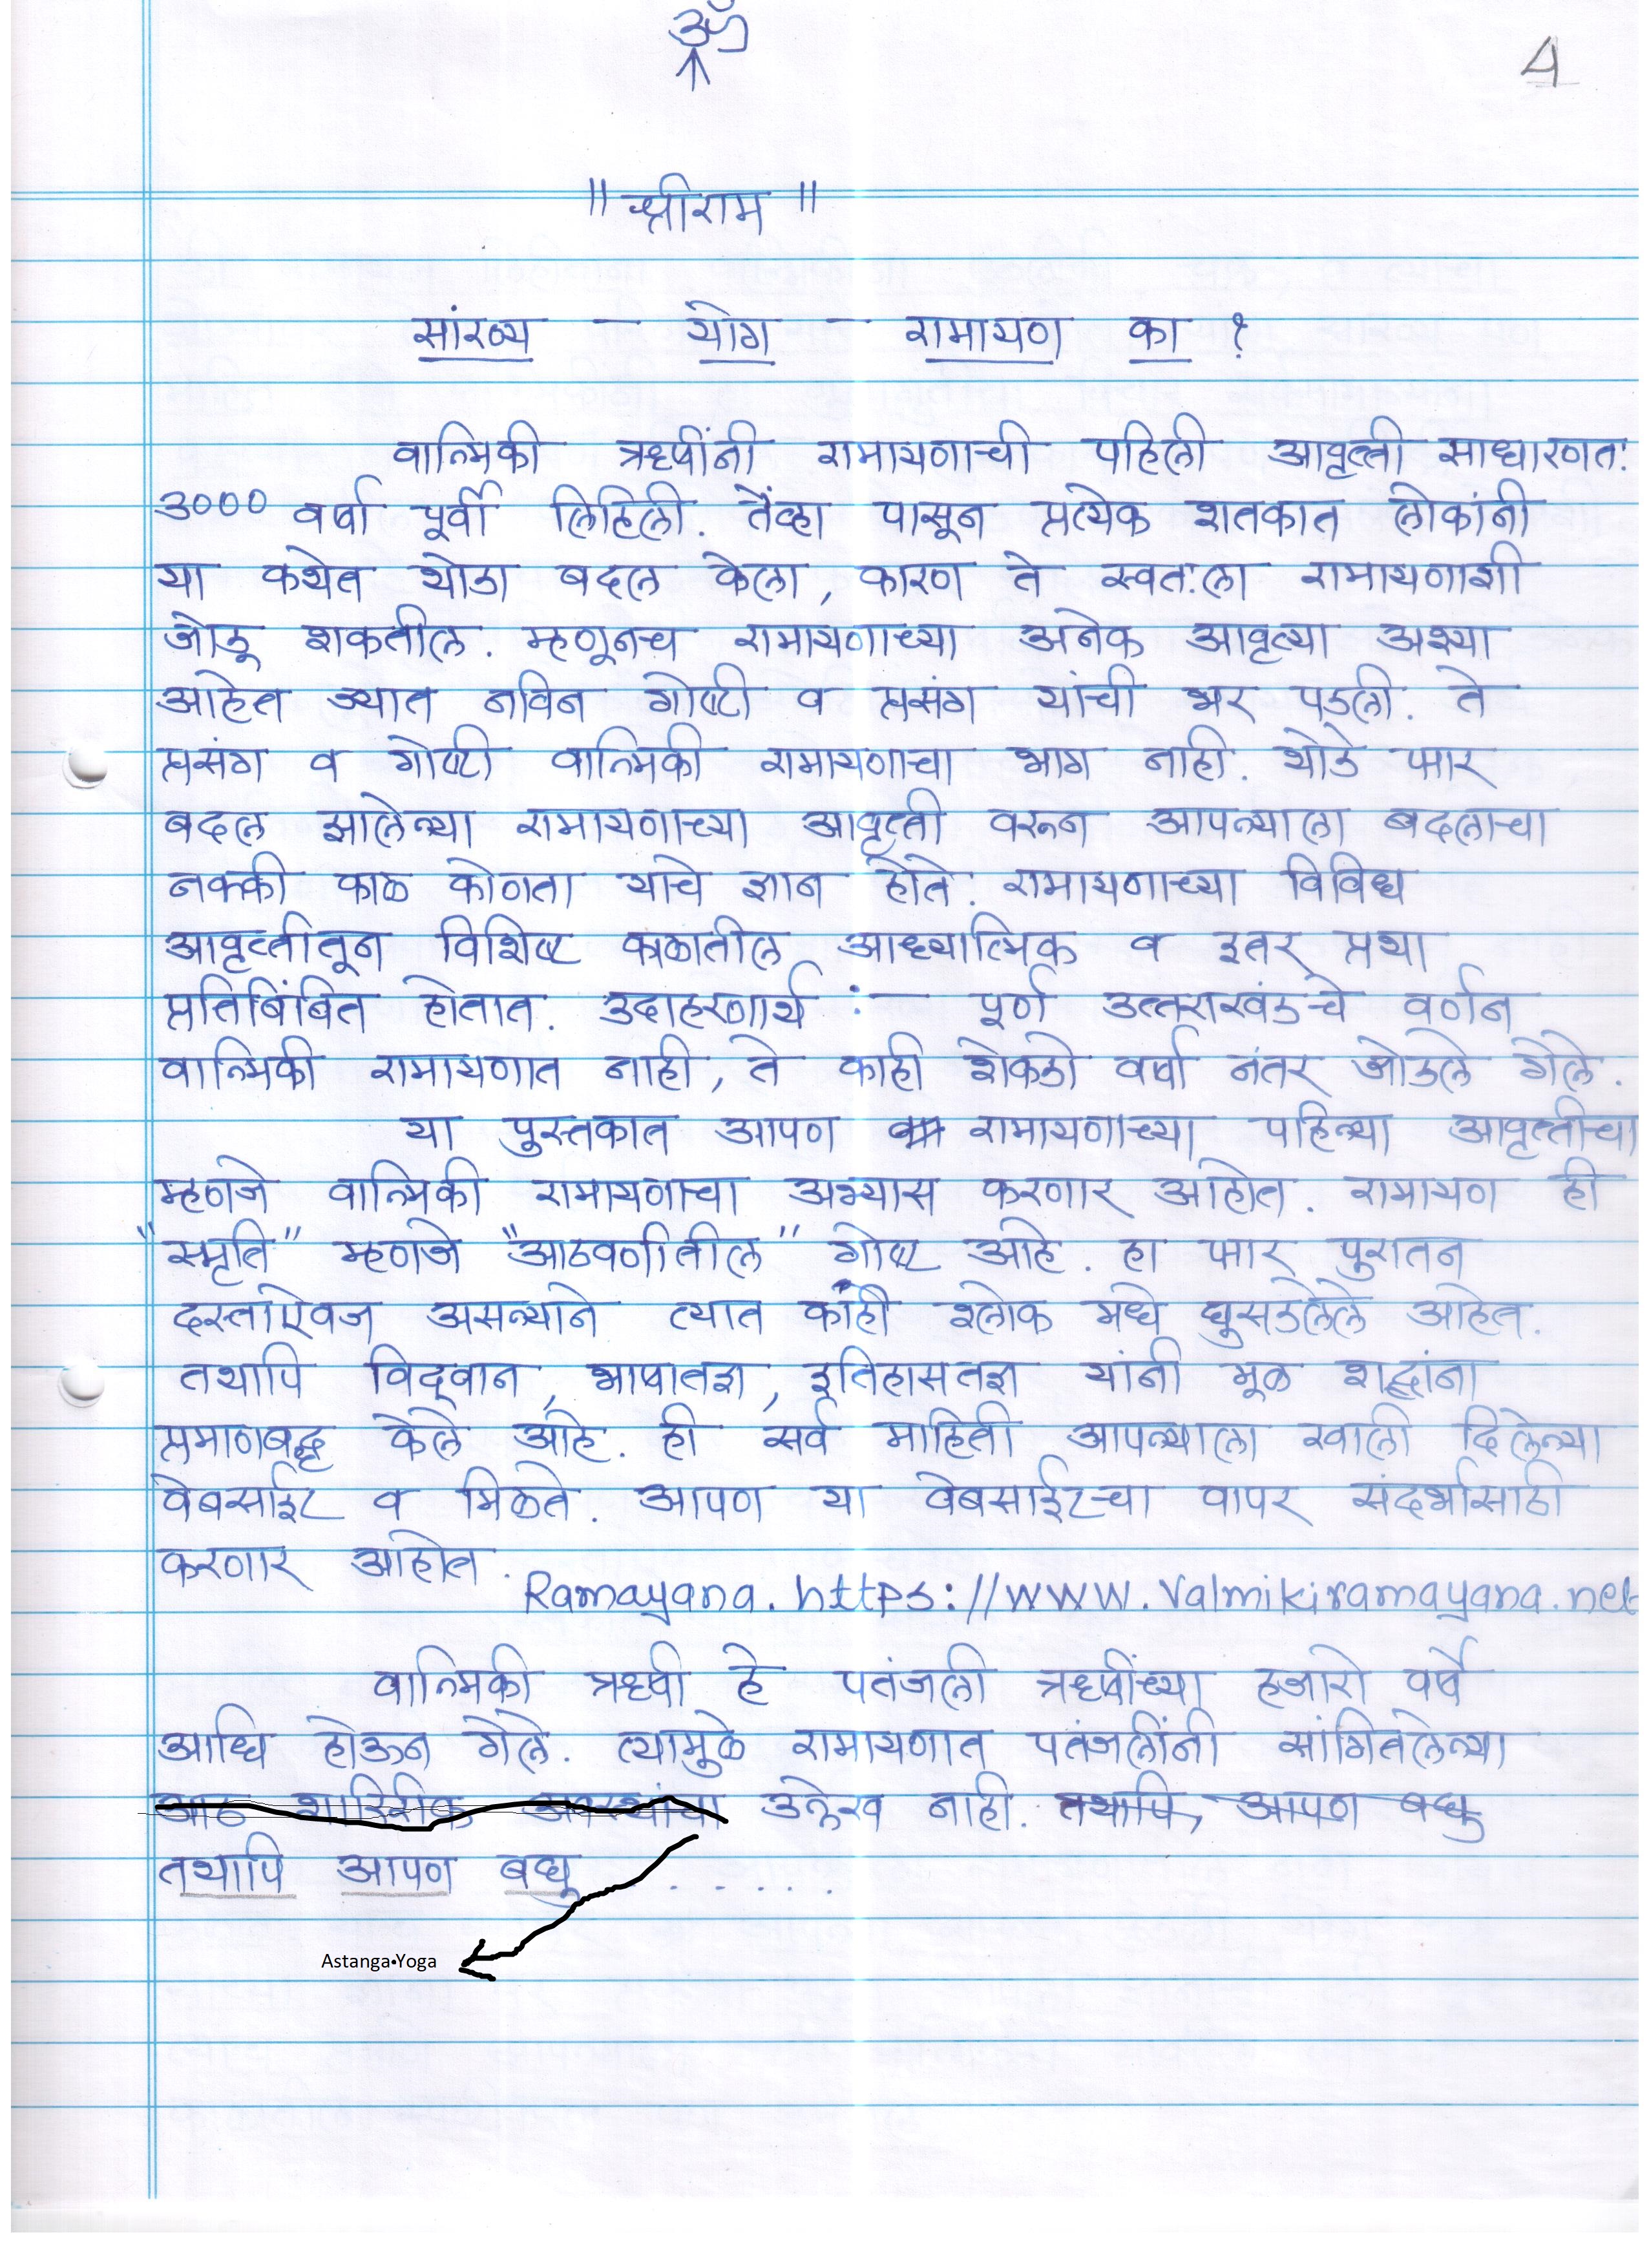 ॐ
4
"श्रीराम"
सांख्य - योग - रामायण का?
वाल्मिकी ऋषींनी रामायणाची पहिली आवृत्ती साधारणतः
३००० वर्षा पूर्वी लिहिली. तेंव्हा पासून प्रत्येक शतकात लोकांनी
या कथेत थोडा बदल केला, कारण ते स्वतःला रामायणाशी
जोडू शकतील. म्हणूनच रामायणाच्या अनेक आवृत्या अश्या
आहेत ज्यात नविन गोष्टी व प्रसंग यांची भर पडली. ते
प्रसंग व गोष्टी वाल्मिकी रामायणाचा भाग नाही. थोडे फार
बदल झालेल्या रामायणाच्या आवृत्ती वरून आपल्याला बदलाचा
नक्की काळ कोणता याचे ज्ञान होते. रामायणाच्या विविध
आवृत्तीतून विशिष्ट काळातील आध्यात्मिक व इतर प्रथा
प्रतिबिंबित होतात. उदाहरणार्थ :- पूर्ण उत्तराखंडचे वर्णन
वाल्मिकी रामायणात नाही, ते काही शेकडो वर्षा नंतर जोडले गेले.
या पुस्तकात आपण रामायणाच्या पहिल्या आवृत्तीचा
म्हणजे वाल्मिकी रामायणाचा अभ्यास करणार आहोत. रामायण ही
"स्मृति" म्हणजे "आठवणीतील" गोष्ट आहे. हा फार पुरातन
दस्ताऐवज असल्याने त्यात काही श्लोक मधे घुसडलेले आहेत.
तथापि विद्वान, भाषातज्ञ, इतिहासतज्ञ यांनी मूळ शब्दांना
प्रमाणबद्ध केले आहे. ही सर्व माहिती आपल्याला खाली दिलेल्या
वेबसाईट व मिळते. आपण या वेबसाईटचा वापर संदर्भासाठी
करणार आहोत.
Ramayana. https://www.Valmikiramayana.net
वाल्मिकी ऋषी हे पतंजली ऋषींच्या हजारो वर्षे
आधि होऊन गेले. त्यामुळे रामायणात पतंजलींनी सांगितलेल्या
आठ शारिरीक अवस्थांचा उल्लेख नाही. तथापि, आपण बघु
तथापि आपण बघु . . . . . .
Astanga•Yoga